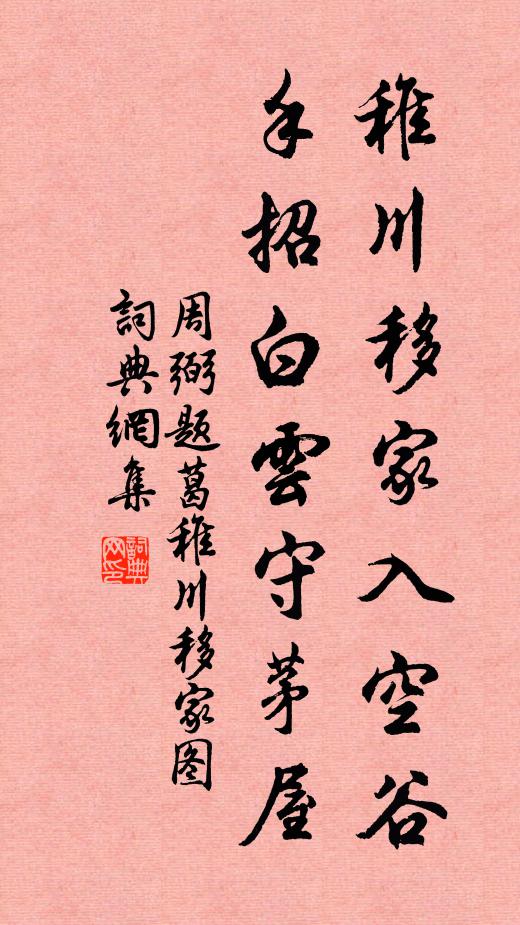 稚川移家入空谷
手招白雲守茅屋
周弼题葛稚川移家图
詞典網集
詞典网印